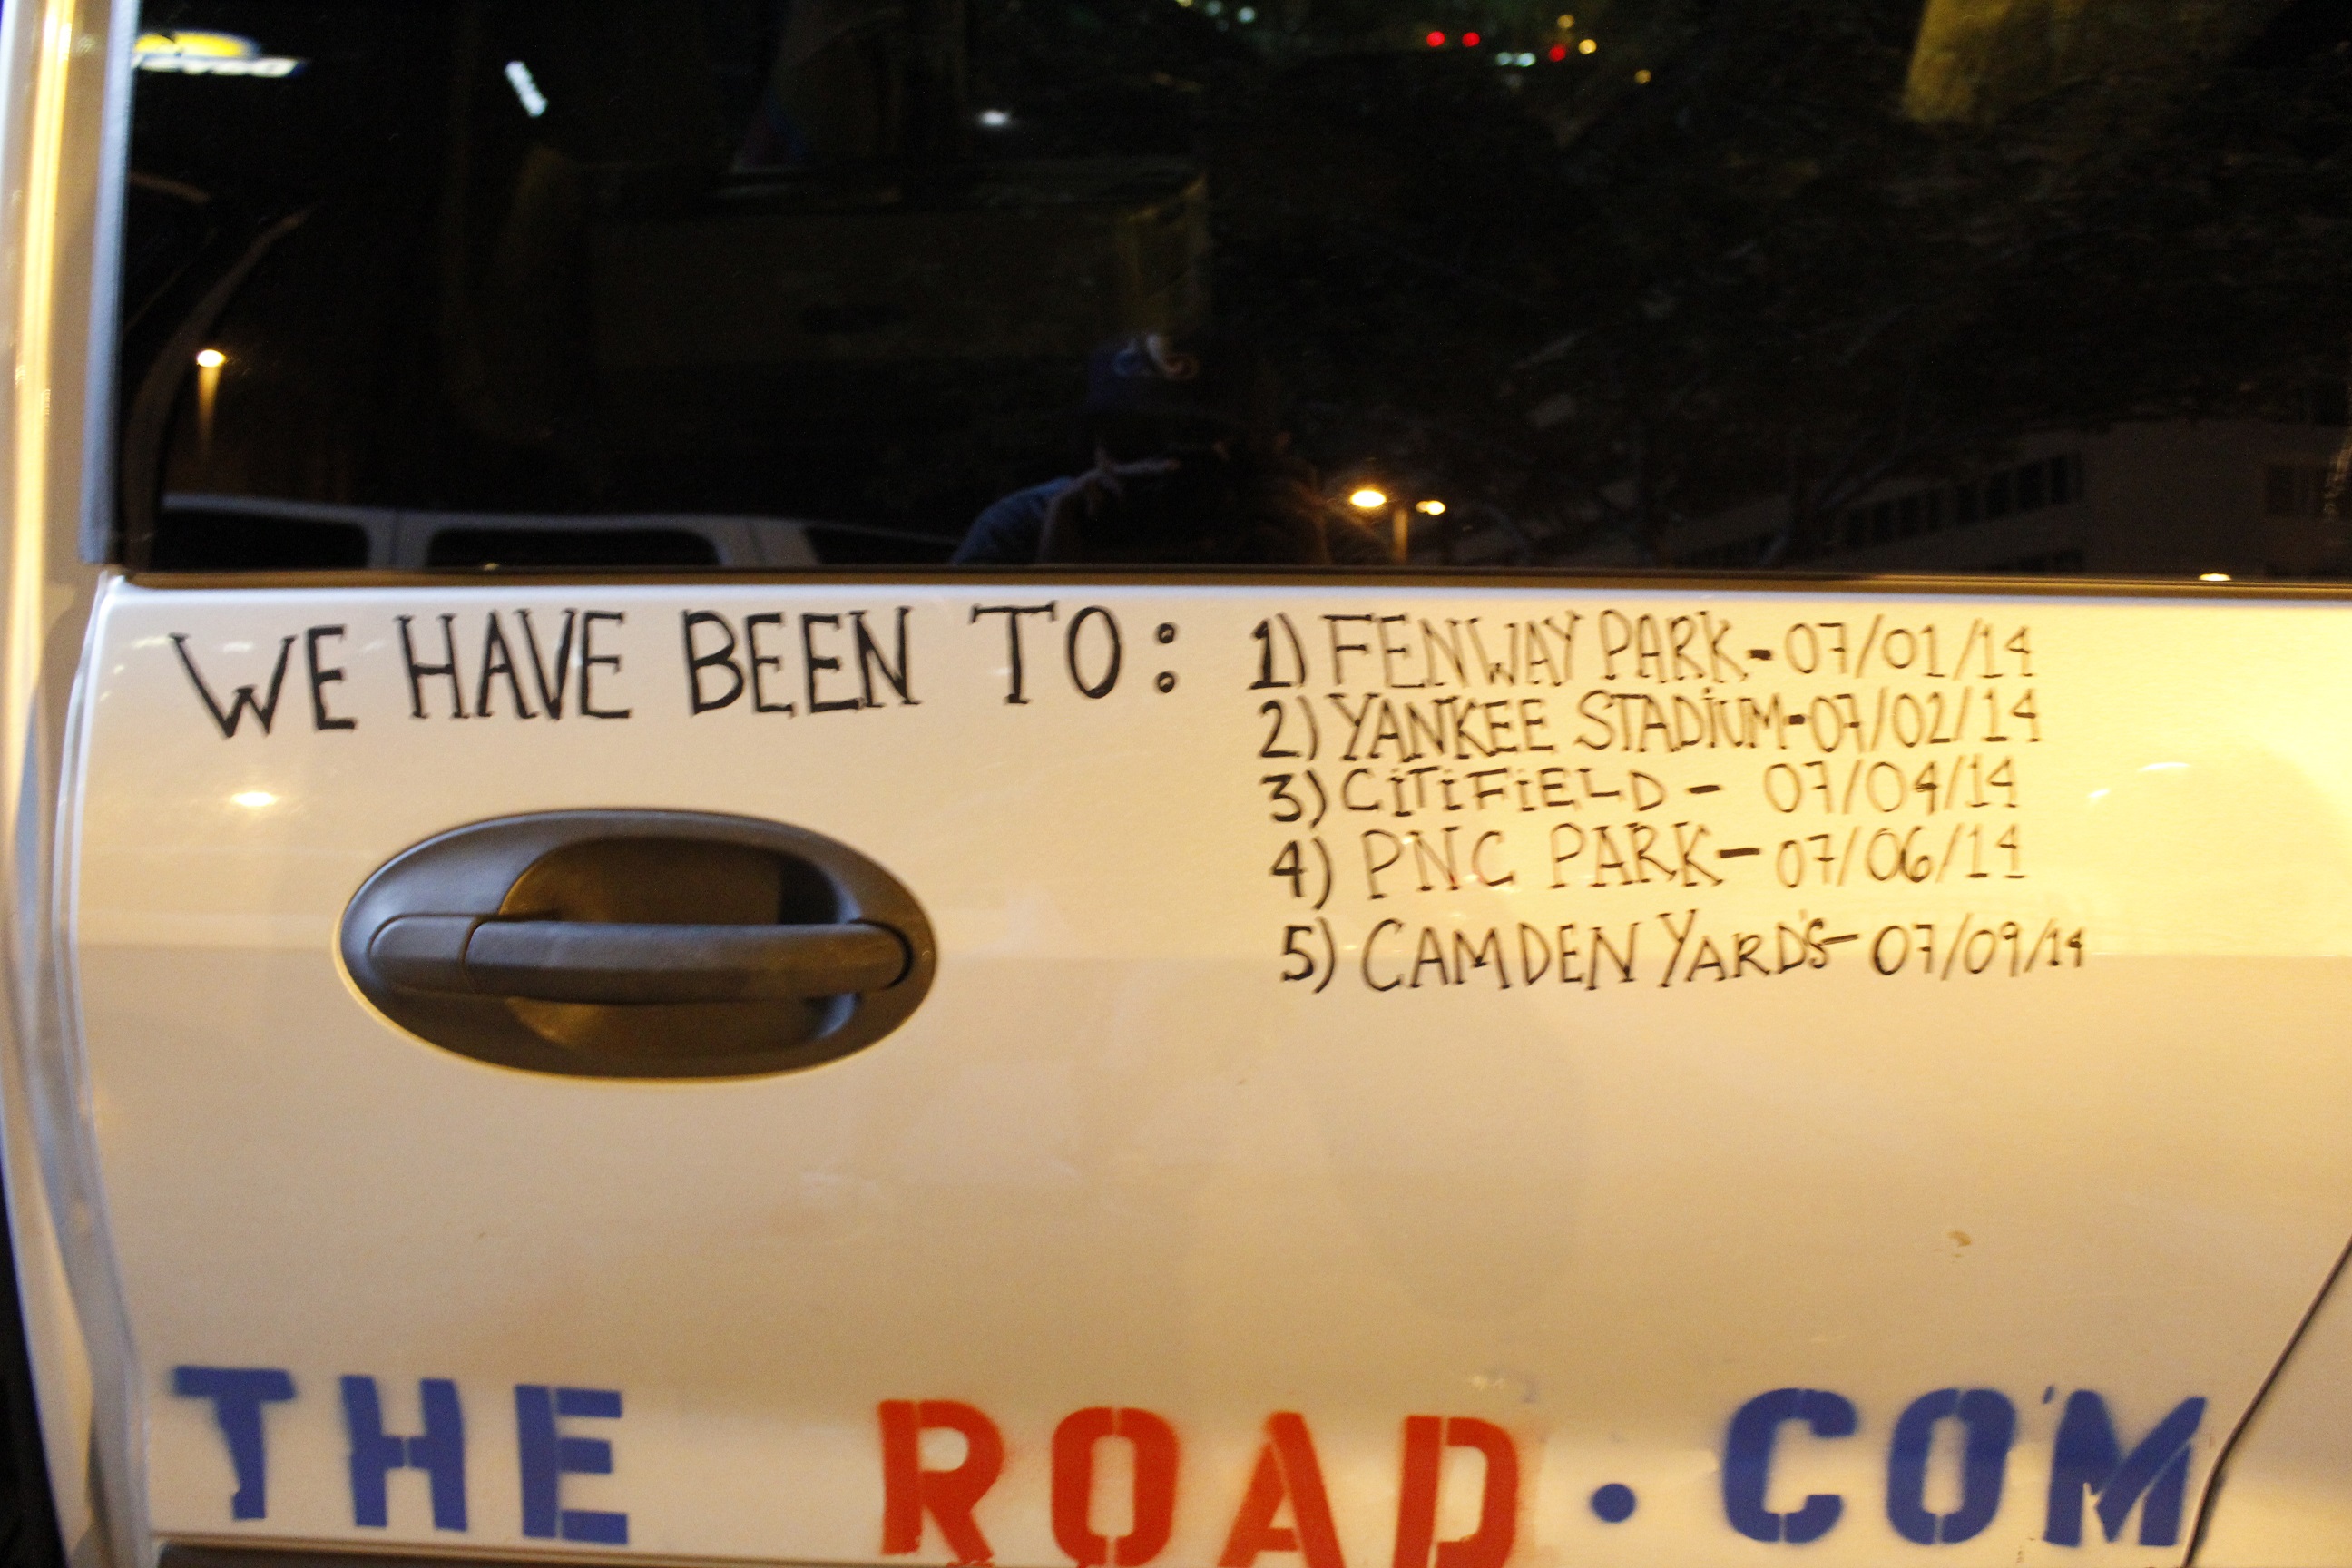 WE HAVE BEEN TO:
1) FENWAY PARK - 07/01/14
2) YANKEE STADIUM - 07/02/14
3) CITIFIELD - 07/04/14
4) PNC PARK - 07/06/14
5) CAMDEN YARD'S - 07/09/14
THE ROAD.COM